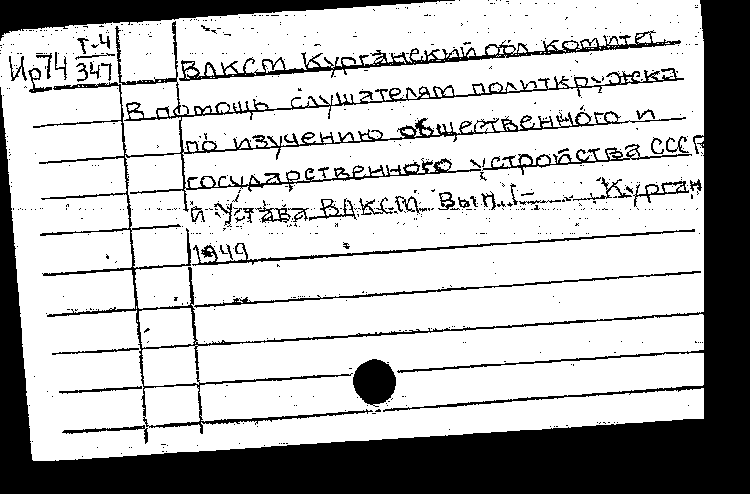 Ир74 Т-4
347
ВЛКСМ Курганский обл комитет
В помощь слушателям политкружка
по изучению общественного и
государственного устройства СССР
и Устава ВЛКСМ. Вып. I- Курган
1949